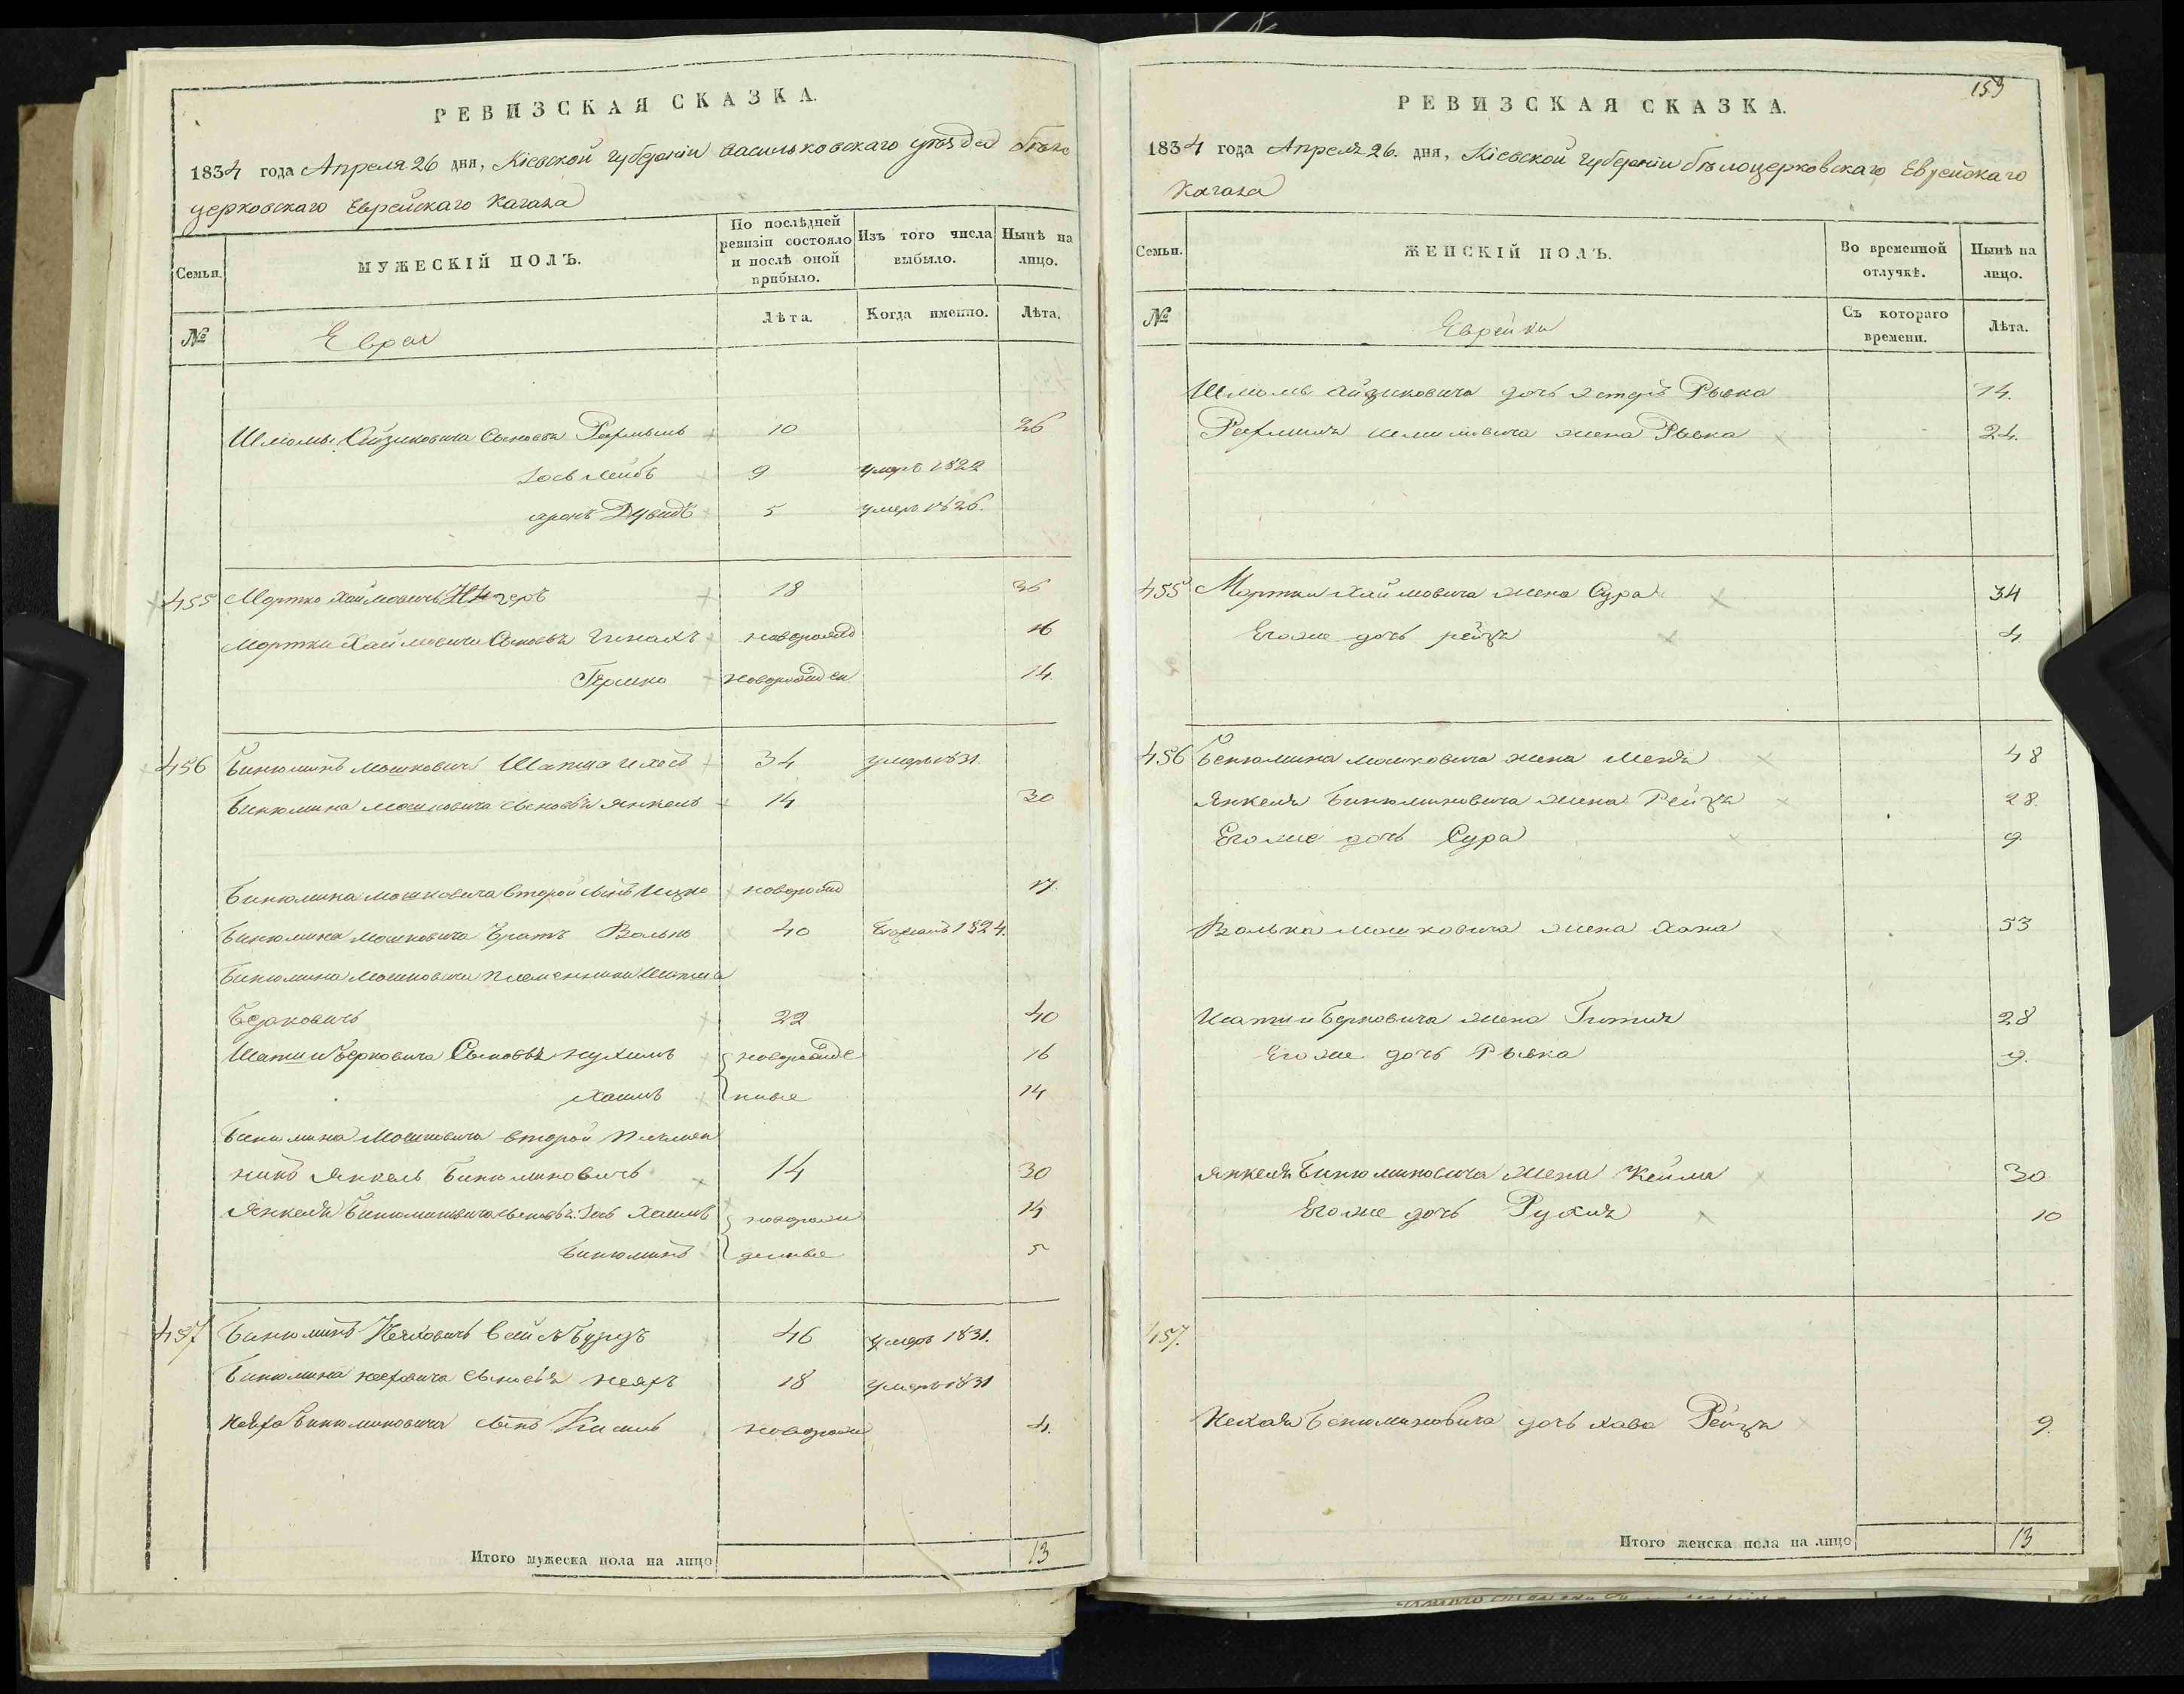 РЕВИЗСКАЯ СКАЗКА.
1834 года Апреля 26 дня, Кіевской губерніи Васильковскаго уѣзда бѣло
церковскаго Еврейскаго Кагала
Семьи.
МУЖЕСКІЙ ПОЛЪ.
По послѣдней ревизіи состояло и послѣ оной прибыло.
Изъ того числа выбыло.
Нынѣ на лицо.
№
Евреи
Лѣта.
Когда именно.
Лѣта.
Шліомы Айзиковича Сыновья 10 26
Іось Лейбъ 9 умеръ 1822
аронъ Дувидъ 5 умеръ 1826.
455 Мортко Хаймовичъ 18 36
Мортки Хаймовича Сыновья 16
Гершко новорожден 14.
456 Бинюминъ Мошковичъ 34 умеръ 1831.
Бинюмина Мошковича сыновья Янкель 14 30
Бинюмина Мошковича второй сынъ Ицко новорожд 17.
Бинюмина Мошковича братъ 40 1824.
Бинюмина Мошковича племянники Шапша
Берковичъ 22 40
Шапши Берковича Сыновья Нухимъ новорожде 16
Хаимъ нные 14
Бинюмина Мошковича второй племян
никъ Янкель Бинюминовичъ 14 30
Янкеля Бинюминовича сыновья Іось Хаимъ новорож 14
Бинюминъ денные 5
457 Бинюминъ 46 умеръ 1831.
Бинюмина сыновья 18 умеръ 1831
Бинюминовича сынъ новорож 4.
Итого мужеска пола на лицо 13
153
РЕВИЗСКАЯ СКАЗКА.
1834 года Апреля 26. дня, Кіевской губерніи бѣлоцерковскаго Еврейскаго
Кагала
Семьи.
ЖЕНСКІЙ ПОЛЪ.
Во временной отлучкѣ.
Нынѣ на лицо.
№
Еврейки
Съ котораго времени.
Лѣта.
Шліомы Айзиковича дочь Рывка 14.
жена Рывка 24.
455 Мортки Хаймовича жена Сура 34
Его же дочь рейзя 4.
456 Бенюмина Мошковича жена Меня 48
Янкеля Бинюминовича жена Рейзя 28.
Его же дочь Сура 9.
Волька Мошковича жена Хана 53
Шапши Берковича жена Гитля 28
Его же дочь Рывка 9.
Янкеля Бинюминовича жена 30
Его же дочь Рухля 10
457.
Бенюминовича дочь хава Рейзя 9.
Итого женска пола на лицо 13